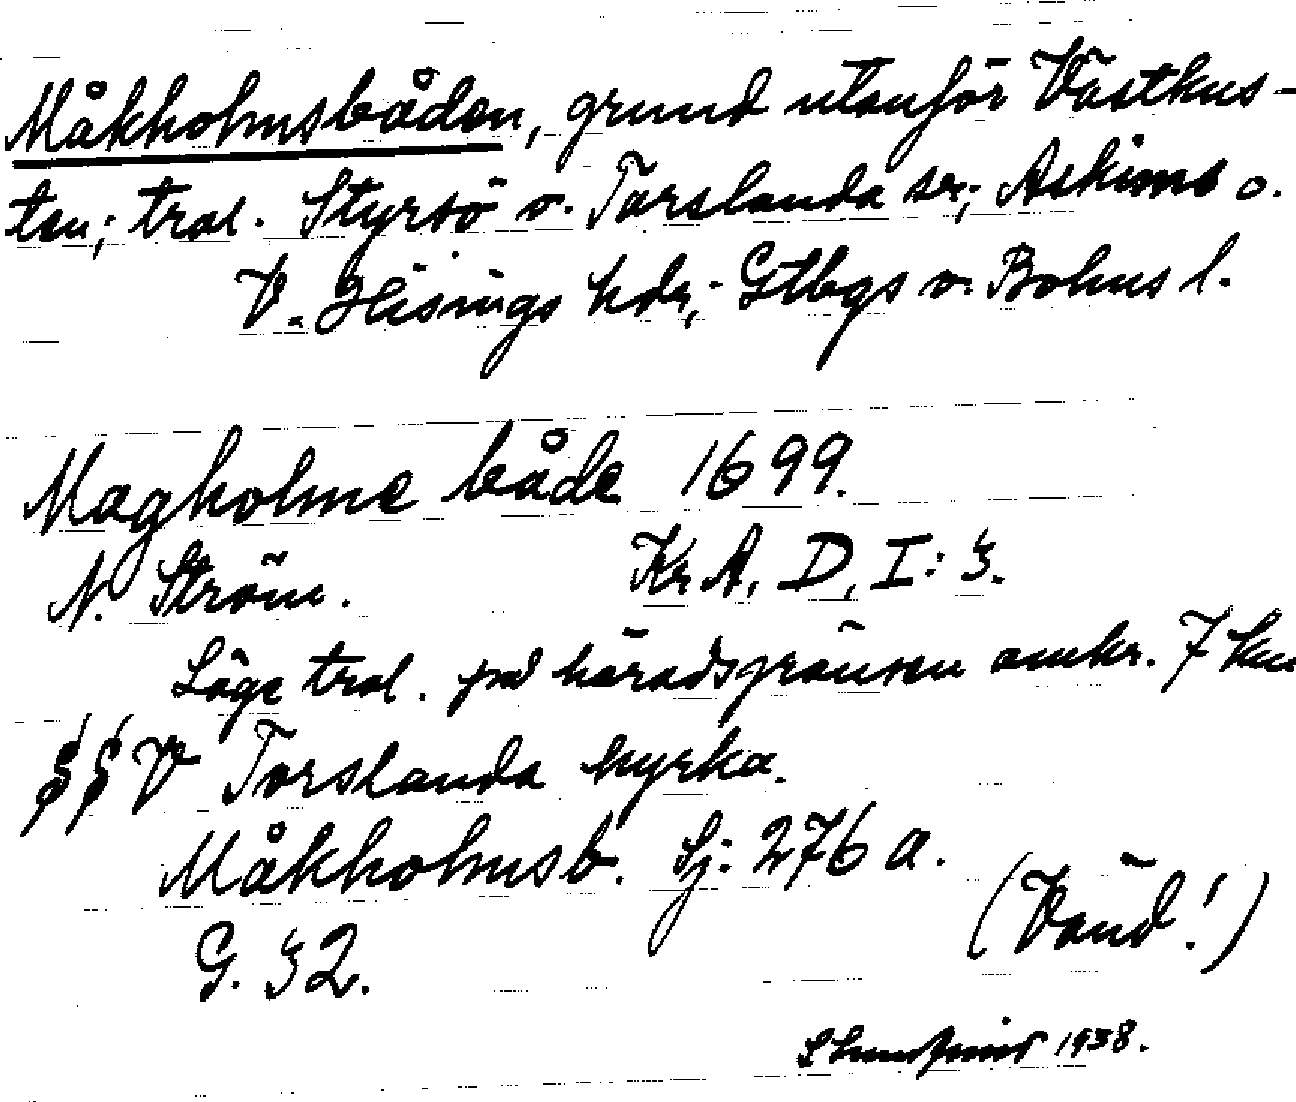 Måkholmsbåden, grund utanför Västkus-
ten; trol. Styrsö o. Torslanda sr; Askims o.
V. Hisings hdr; Gtbgs o. Bohus l.
Magholme både 1699.
N. Ström. Kr A, D, I: 3.
Läge trol. på häradsgränsen omkr. 7 km
§§ V Torslanda kyrka.
Måkholmsb. Sj: 276 a.
G. 32. (Vänd!)
1938.